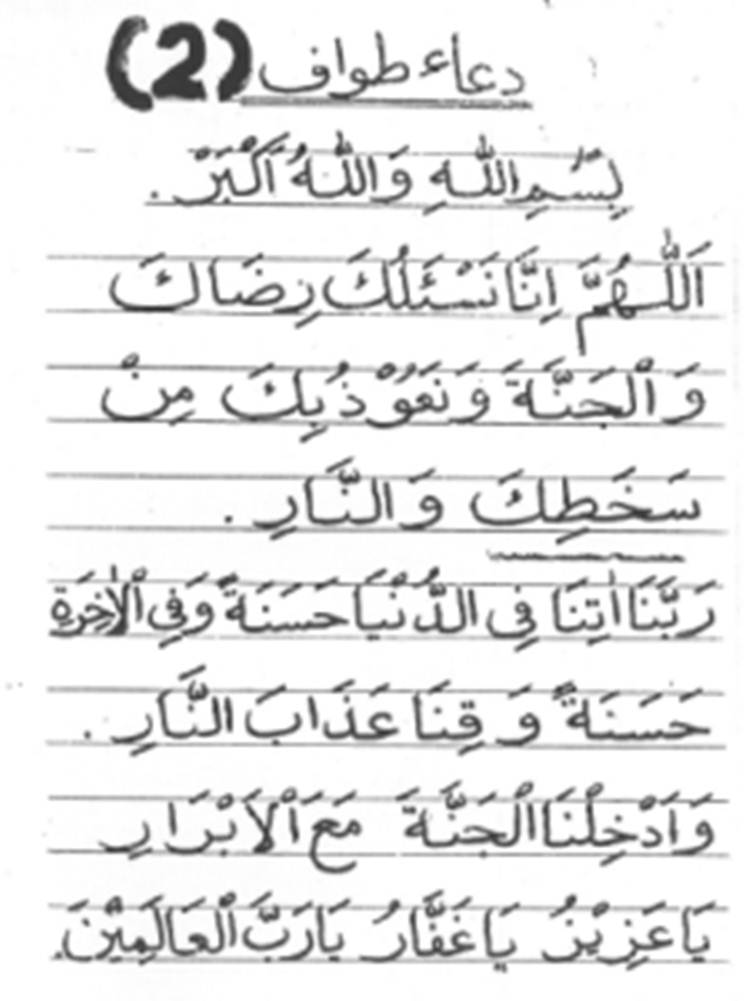 دعاء طواف (2)
بِسْمِ اللّٰهِ وَاللّٰهُ اَكْبَرْ .
اَللّٰهُمَّ اِنَّا نَسْئَلُكَ رِضَاكَ
وَالْجَنَّةَ وَنَعُوْذُبِكَ مِنْ
سَخَطِكَ وَالنَّارِ .
رَبَّنَا اٰتِنَا فِى الدُّنْيَا حَسَنَةً وَفِى الْاٰخِرَةِ
حَسَنَةً وَقِنَا عَذَابَ النَّارِ .
وَاَدْخِلْنَا الْجَنَّةَ مَعَ الْاَبْرَارِ
يَا عَزِيْزُ يَا غَفَّارُ يَارَبَّ الْعَالَمِيْنَ.